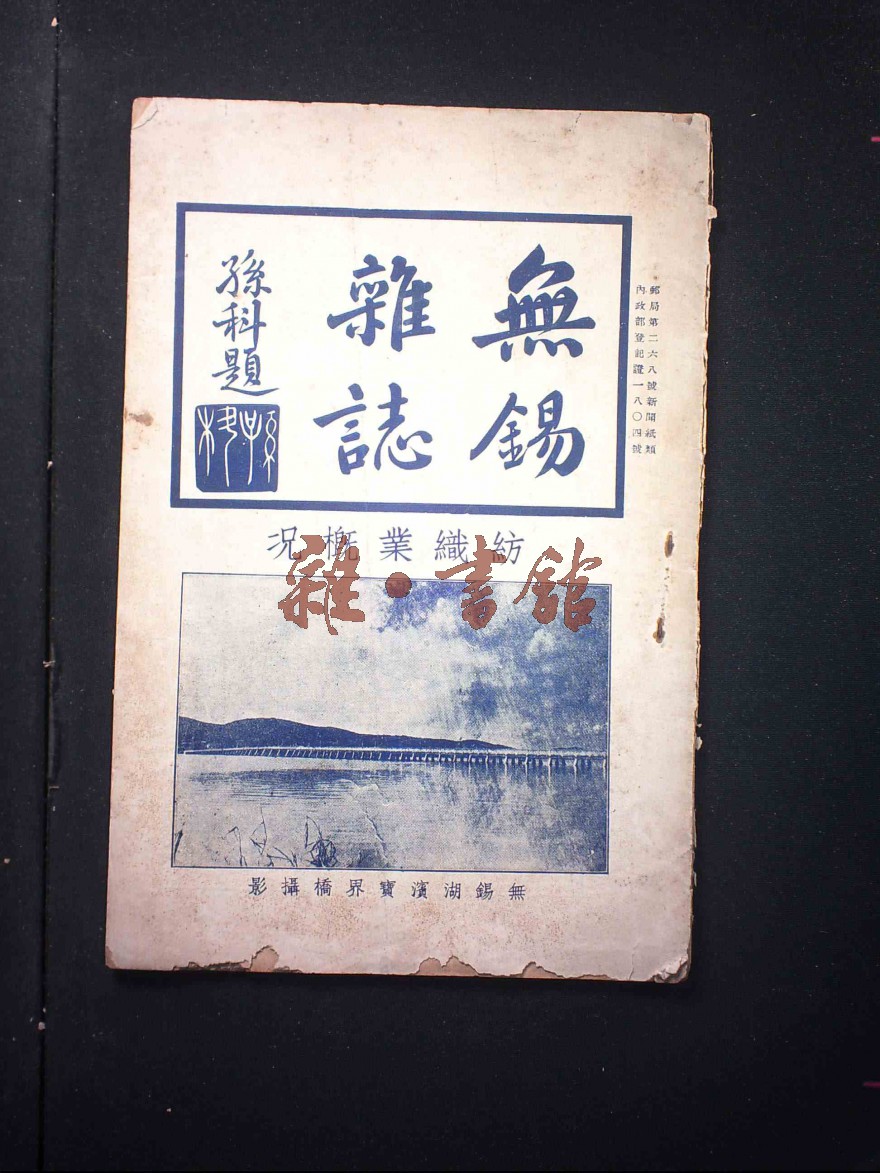 郵局第二六八號新聞紙類
內政部登記證一八〇四號
無錫
雜誌
孫科題
紡織業概況
雜·書館
無錫湖濱寶界橋攝影